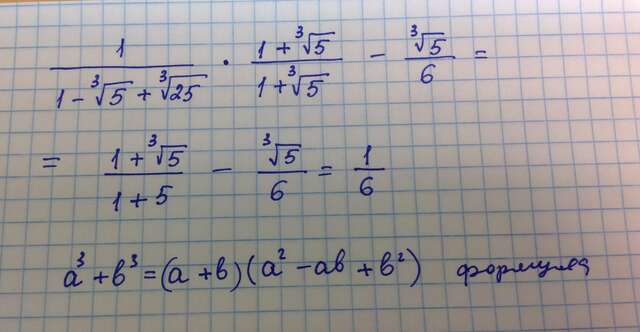 1/(1 - ∛5 + ∛25) · (1 + ∛5)/(1 + ∛5) - ∛5/6 =
= (1 + ∛5)/(1 + 5) - ∛5/6 = 1/6
a³ + b³ = (a + b)(a² - ab + b²) формула